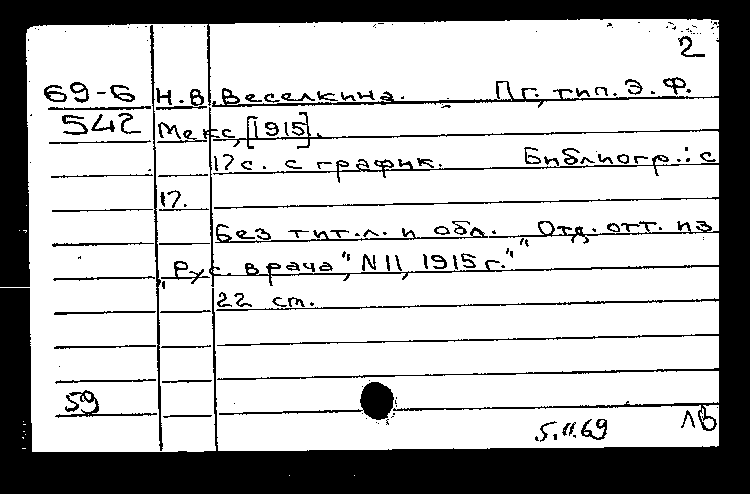 2
69-Б Н.В.Веселкина. Пг., тип. Э. Ф.
542 Мекс, [1915].
17с. с график. Библиогр.: с
17.
Без тит.л. и обл. "Отд. отт. из
"Рус. врача", N11, 1915 г."
22 ст.
59
5.II.69 ЛВ